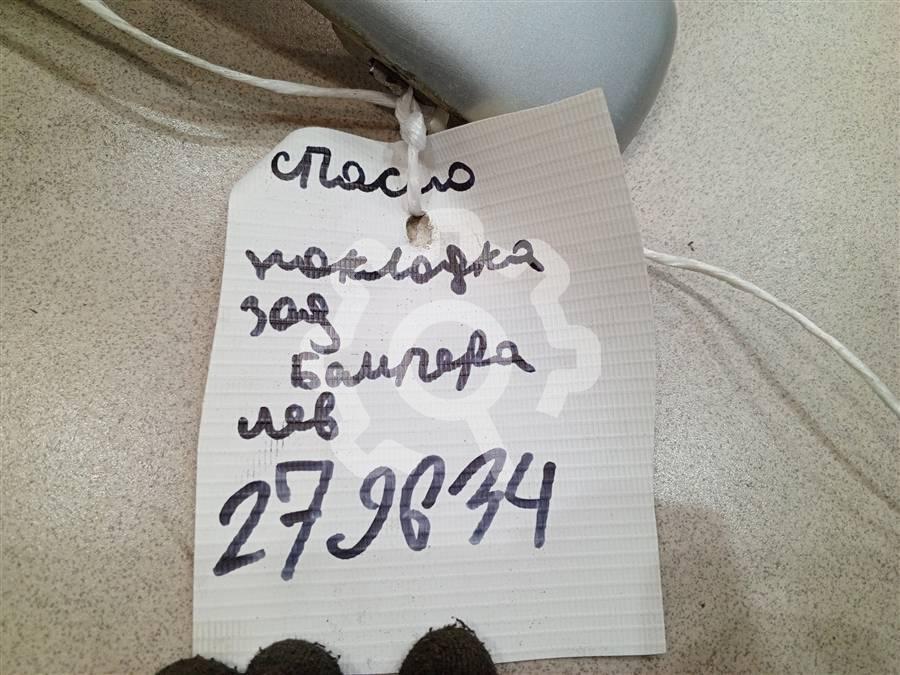 спасло
накладка
зад
бампера
лев
279634